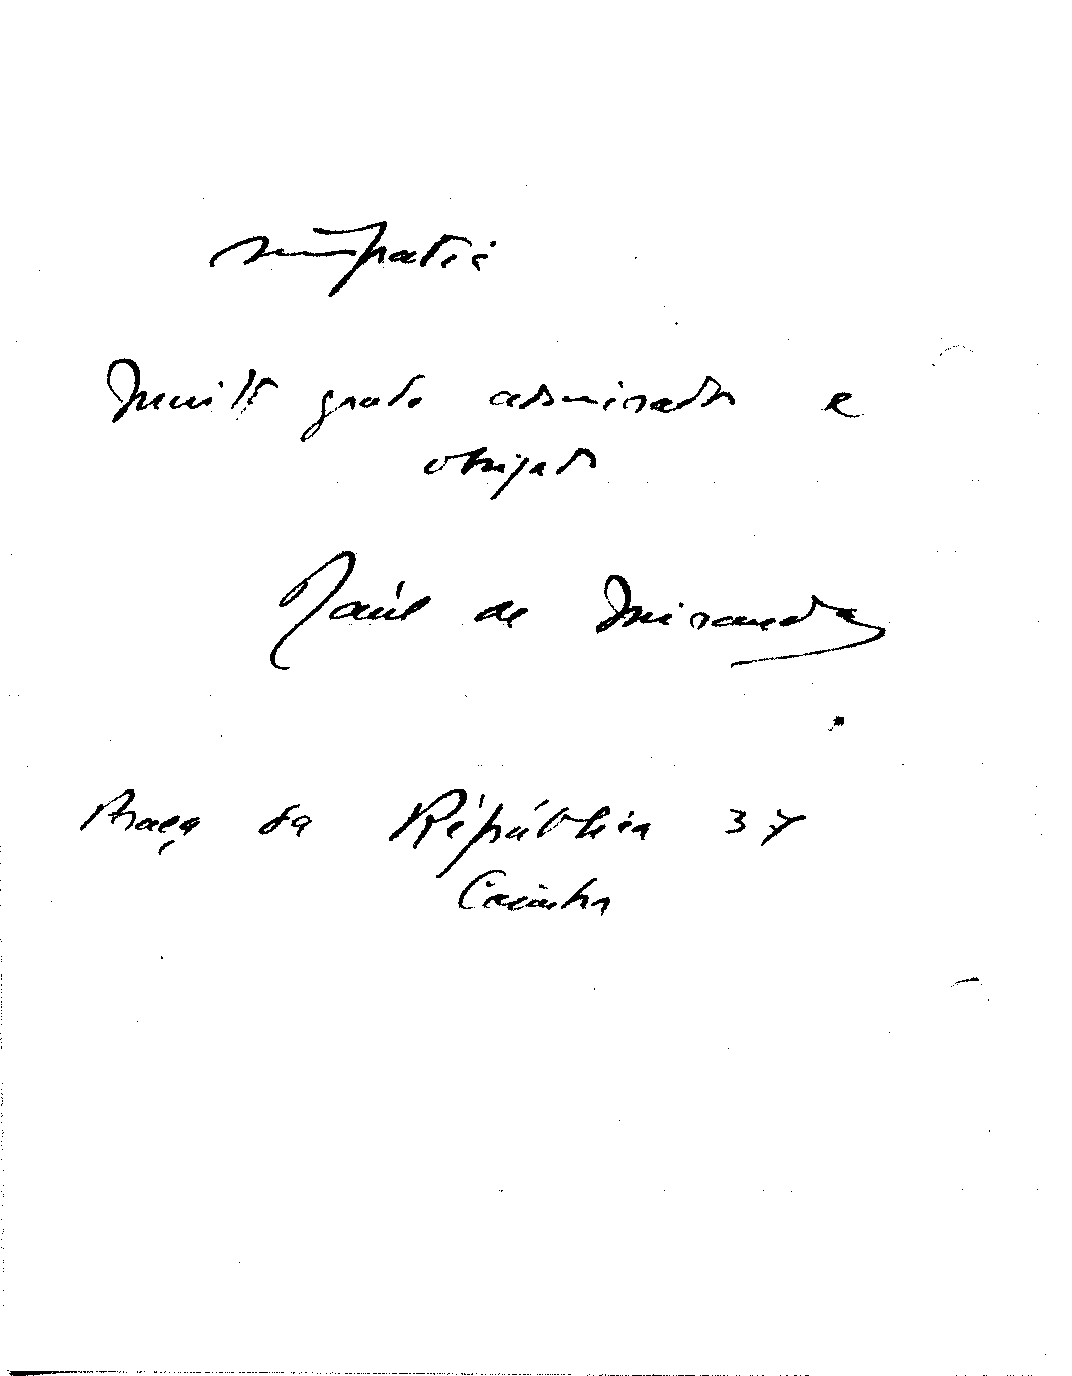 simpatia
Muito grato admirador e
obrigado
Raúl de Miranda
Praça da República 37
Coimbra